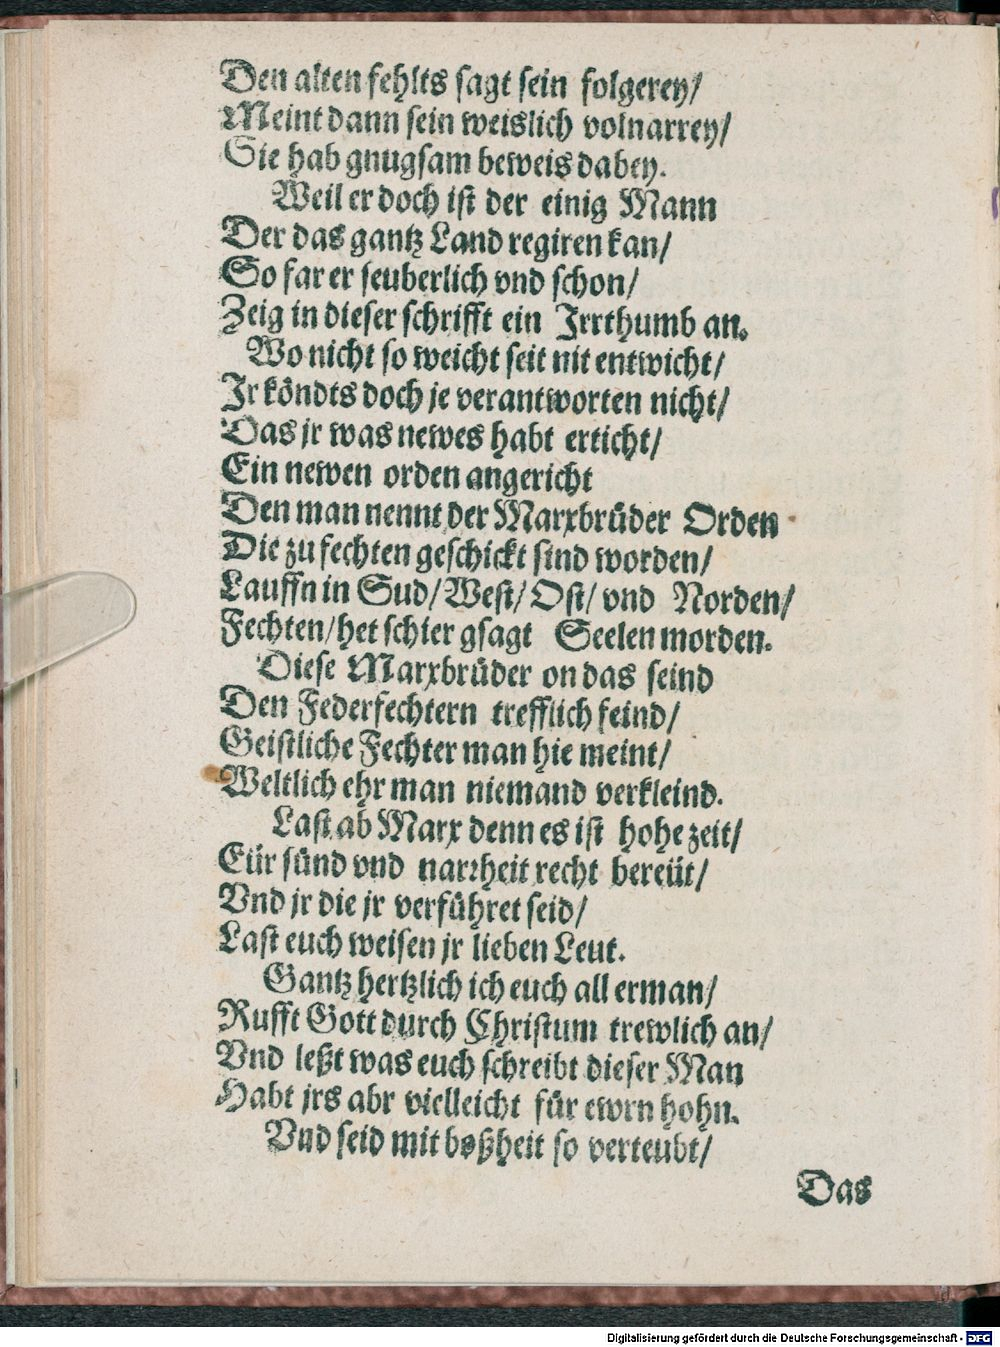 Den alten fehlts sagt sein folgerey/
Meint dann sein weislich volnarrey/
Sie hab gnugsam beweis dabey.
Weil er doch ist der einig Mann
Der das gantz Land regiren kan/
So far er seuberlich vnd schon/
Zeig in dieser schrifft ein Jrrthumb an.
Wo nicht so weicht seit nit entwicht/
Jr köndts doch je verantworten nicht/
Das jr was newes habt erticht/
Ein newen orden angericht
Den man nennt der Marxbrüder Orden
Die zu fechten geschickt sind worden/
Lauffn in Sud/ West/ Ost/ vnd Norden/
Fechten/ het schier gsagt Seelen morden.
Diese Marxbrüder on das seind
Den Federfechtern trefflich feind/
Geistliche Fechter man hie meint/
Weltlich ehr man niemand verkleind.
Last ab Marx denn es ist hohe zeit/
Eür sünd vnd narrheit recht bereüt/
Vnd jr die jr verführet seid/
Last euch weisen jr lieben Leut.
Gantz hertzlich ich euch all erman/
Rufft Gott durch Christum trewlich an/
Vnd leßt was euch schreibt dieser Man
Habt jrs abr vielleicht für ewrn hohn.
Vnd seid mit boßheit so verteubt/
Das
Digitalisierung gefördert durch die Deutsche Forschungsgemeinschaft - DFG